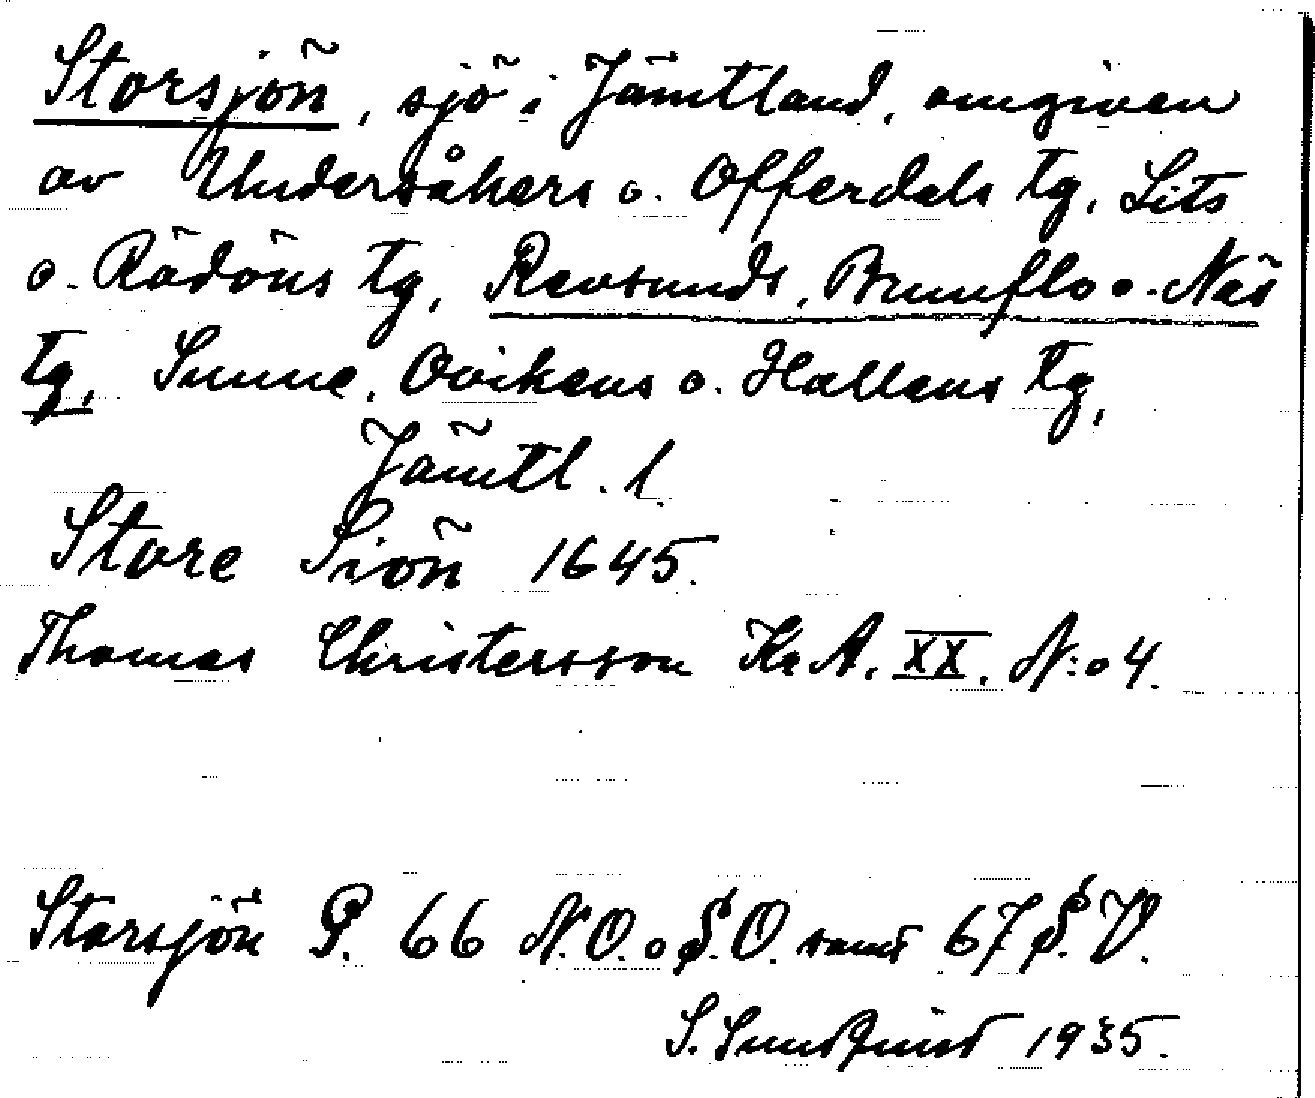 Storsjön, sjö i Jämtland, omgiven
av Undersåkers o. Offerdals tg, Lits
o. Rödöns tg, Revsunds, Brunflo o. Näs
tg, Sunne, Ovikens o. Hallens tg,
Jämtl. l.
Store Siön 1645.
Thomas Christersson Kr A. XX. N:o 4.
Storsjön P. 66 N.O. o S.O. samt 67 S.V.
S. Sundquist 1935.